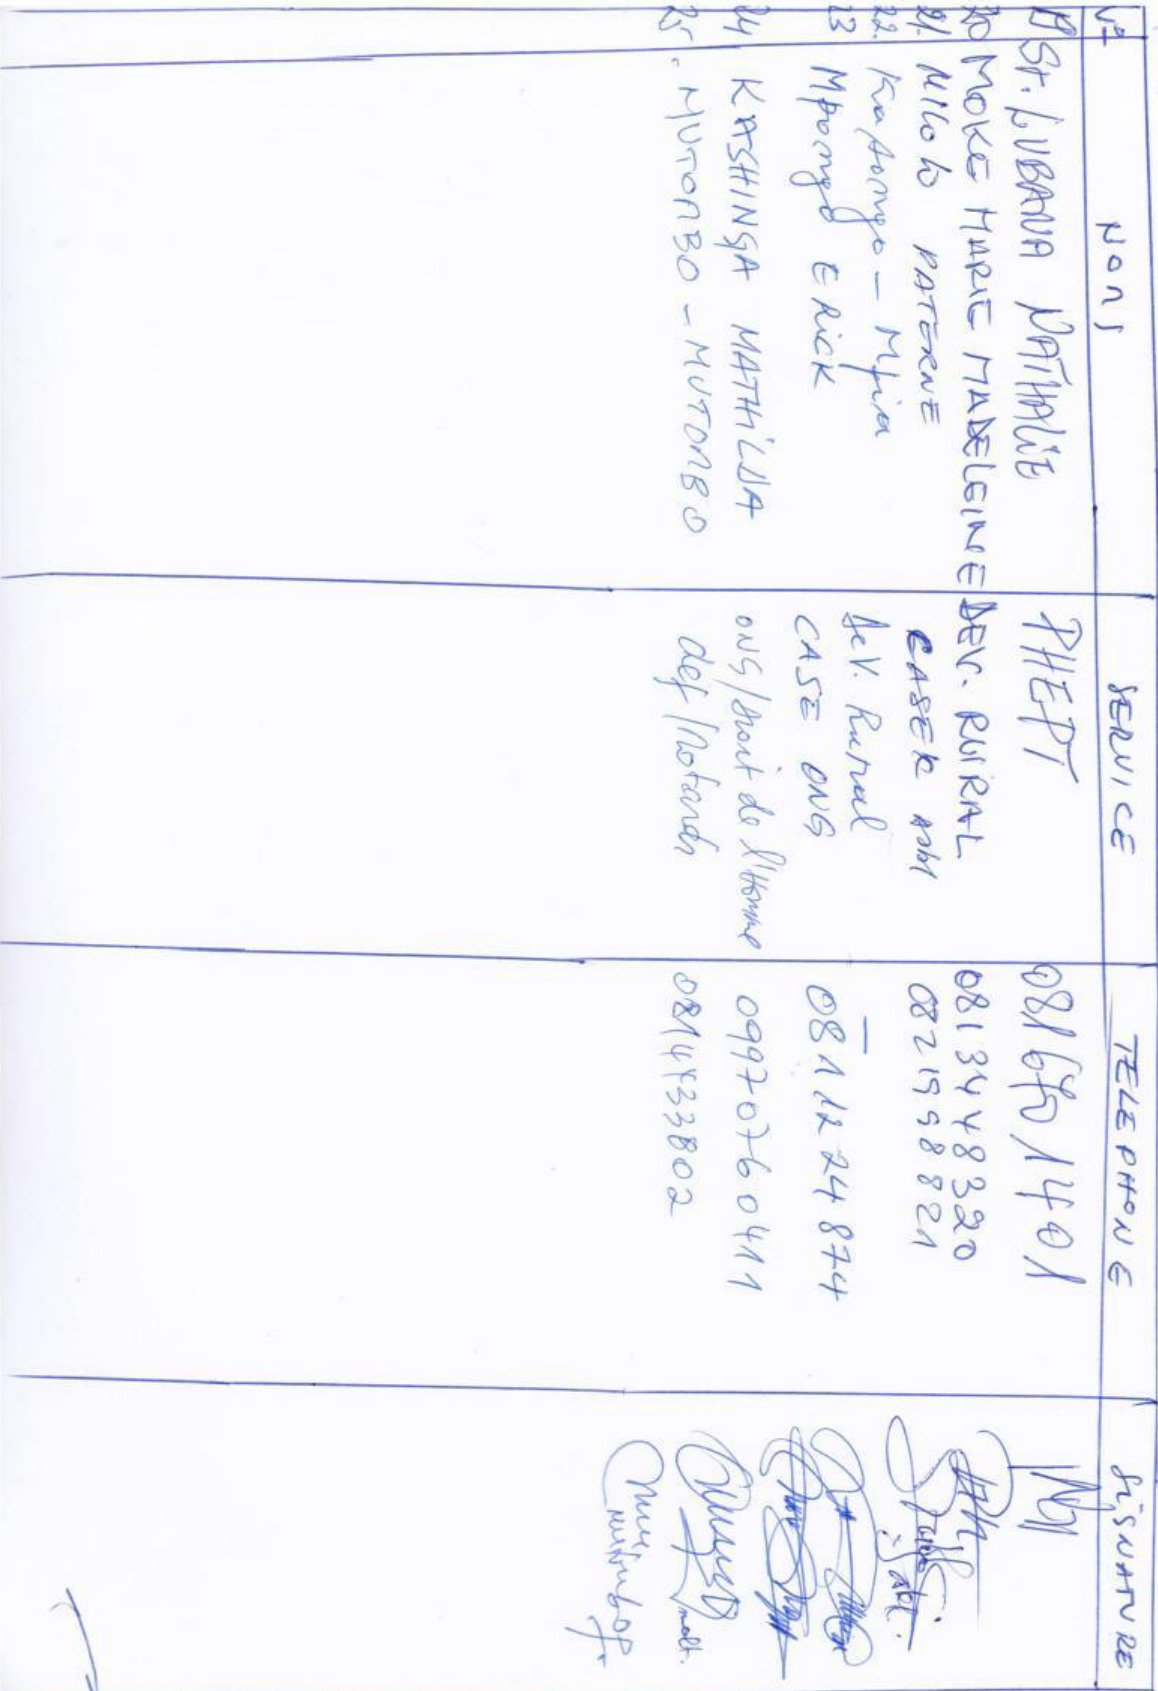 Nº NOMS SERVICE TELEPHONE SIGNATURE
19 Sr. LUBANA NATHALIE PHEPT
20 MOKE MARIE MADELEINE DEV. RURAL 0813448320
21. MILOLO PATERNE CASER asbl 0821998821
22. Katongo - Mfina dev. Rural —
23 Mpongo ERICK CASE ONG 0811224874
24 KASHINGA MATHILDA ONG/droit de l'Homme 0997076041 1
25. MUTOMBO - MUTOMBO def/Notardi 0814433802